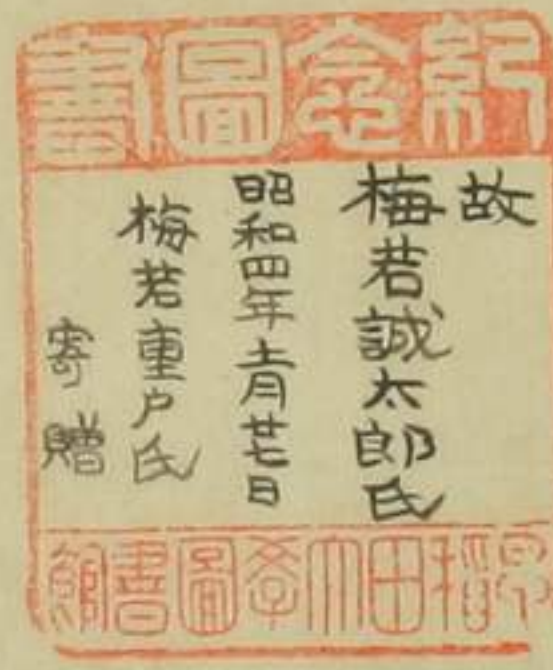 紀念圖書
故
梅若誠太郎氏
昭和四年十一月廿七日
梅若重戶氏
寄贈
早稻田大學圖書館